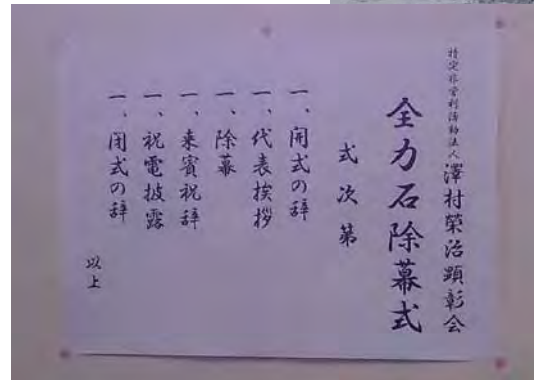 特定非営利活動法人 澤村榮治顕彰会
全力石除幕式
式次第
一、開式の辞
一、代表挨拶
一、除幕
一、来賓祝辞
一、祝電披露
一、閉式の辞
以上